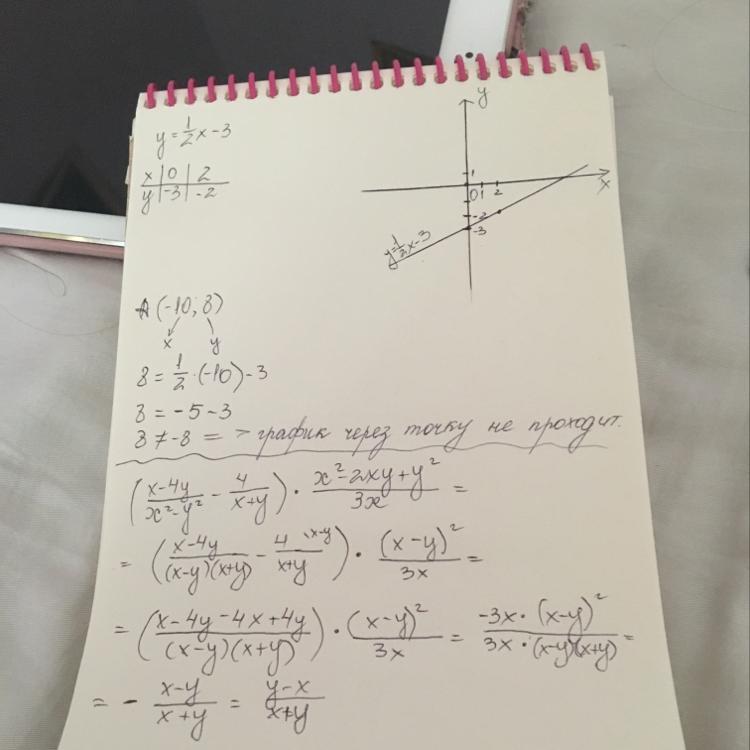 y = 1/2 x - 3
x | 0 | 2
y | -3 | -2
y
1
0 1 2 x
-2
-3
y=1/2x-3
A (-10; 8)
x y
8 = 1/2 · (-10) - 3
8 = -5 - 3
8 ≠ -8 => график через точку не проходит.
((x-4y)/(x²-y²) - 4/(x+y)) · (x²-2xy+y²)/(3x) =
= ((x-4y)/((x-y)(x+y)) - 4\x-y/(x+y)) · (x-y)²/(3x) =
= ((x-4y-4x+4y)/((x-y)(x+y))) · (x-y)²/(3x) = (-3x·(x-y)²)/(3x·(x-y)(x+y)) =
= - (x-y)/(x+y) = (y-x)/(x+y)